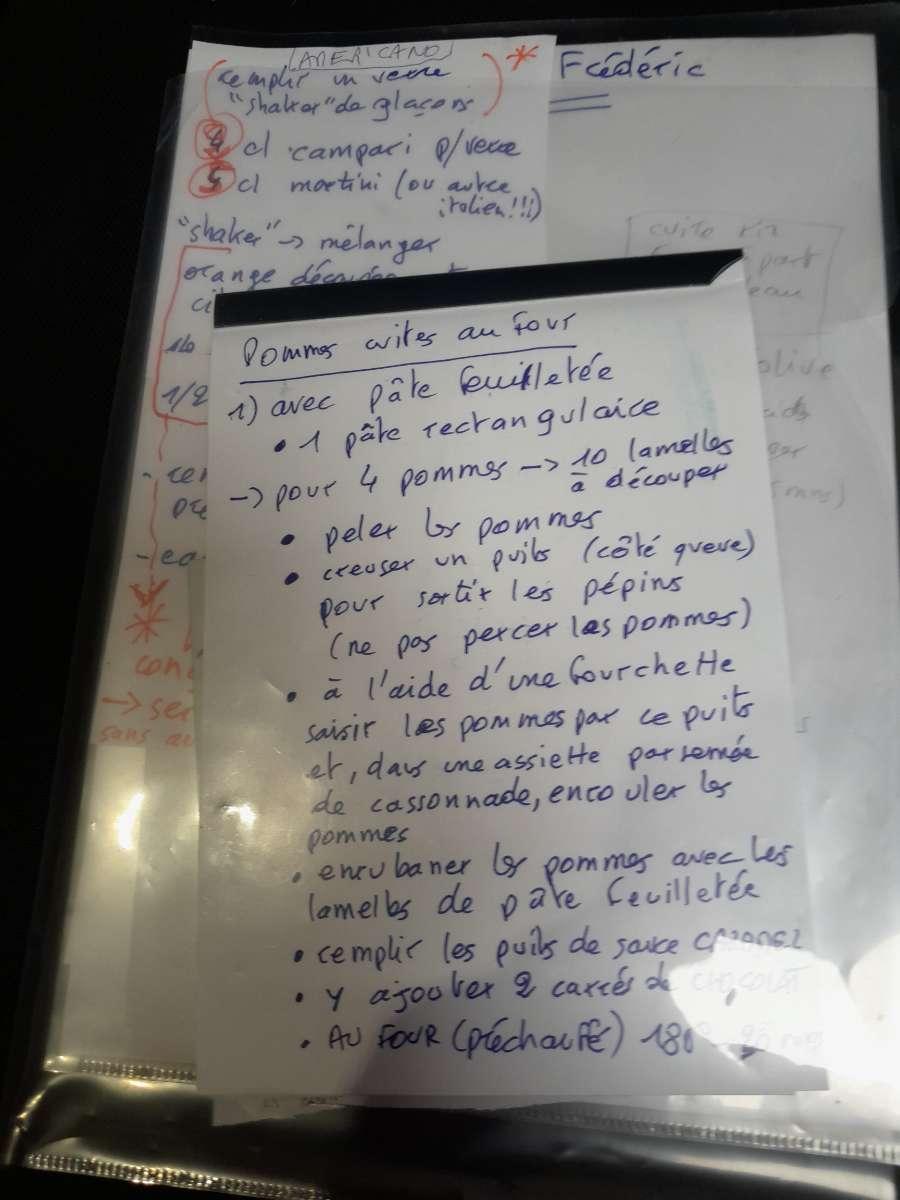 AMERICANO
remplir un verre
"shaker" de glaçons
Frédéric
4 cl campari p/verre
5 cl martini (ou autre
italien!!!)
"shaker" -> mélanger
orange
1/2
cuite riz
part
eau
olive
Pommes cuites au four
1) avec pâte feuilletée
• 1 pâte rectangulaire
-> pour 4 pommes -> 10 lamelles
à découper
• peler les pommes
• creuser un puits (côté queue)
pour sortir les pépins
(ne pas percer les pommes)
• à l'aide d'une fourchette
saisir les pommes par ce puits
et, dans une assiette parsemée
de cassonnade, enrouler les
pommes
• enrubaner les pommes avec les
lamelles de pâte feuilletée
• remplir les puits de sauce CARAMEL
• y ajouter 2 carrés de CHOCOLAT
• AU FOUR (préchauffé) 180°
-> ser
sans au